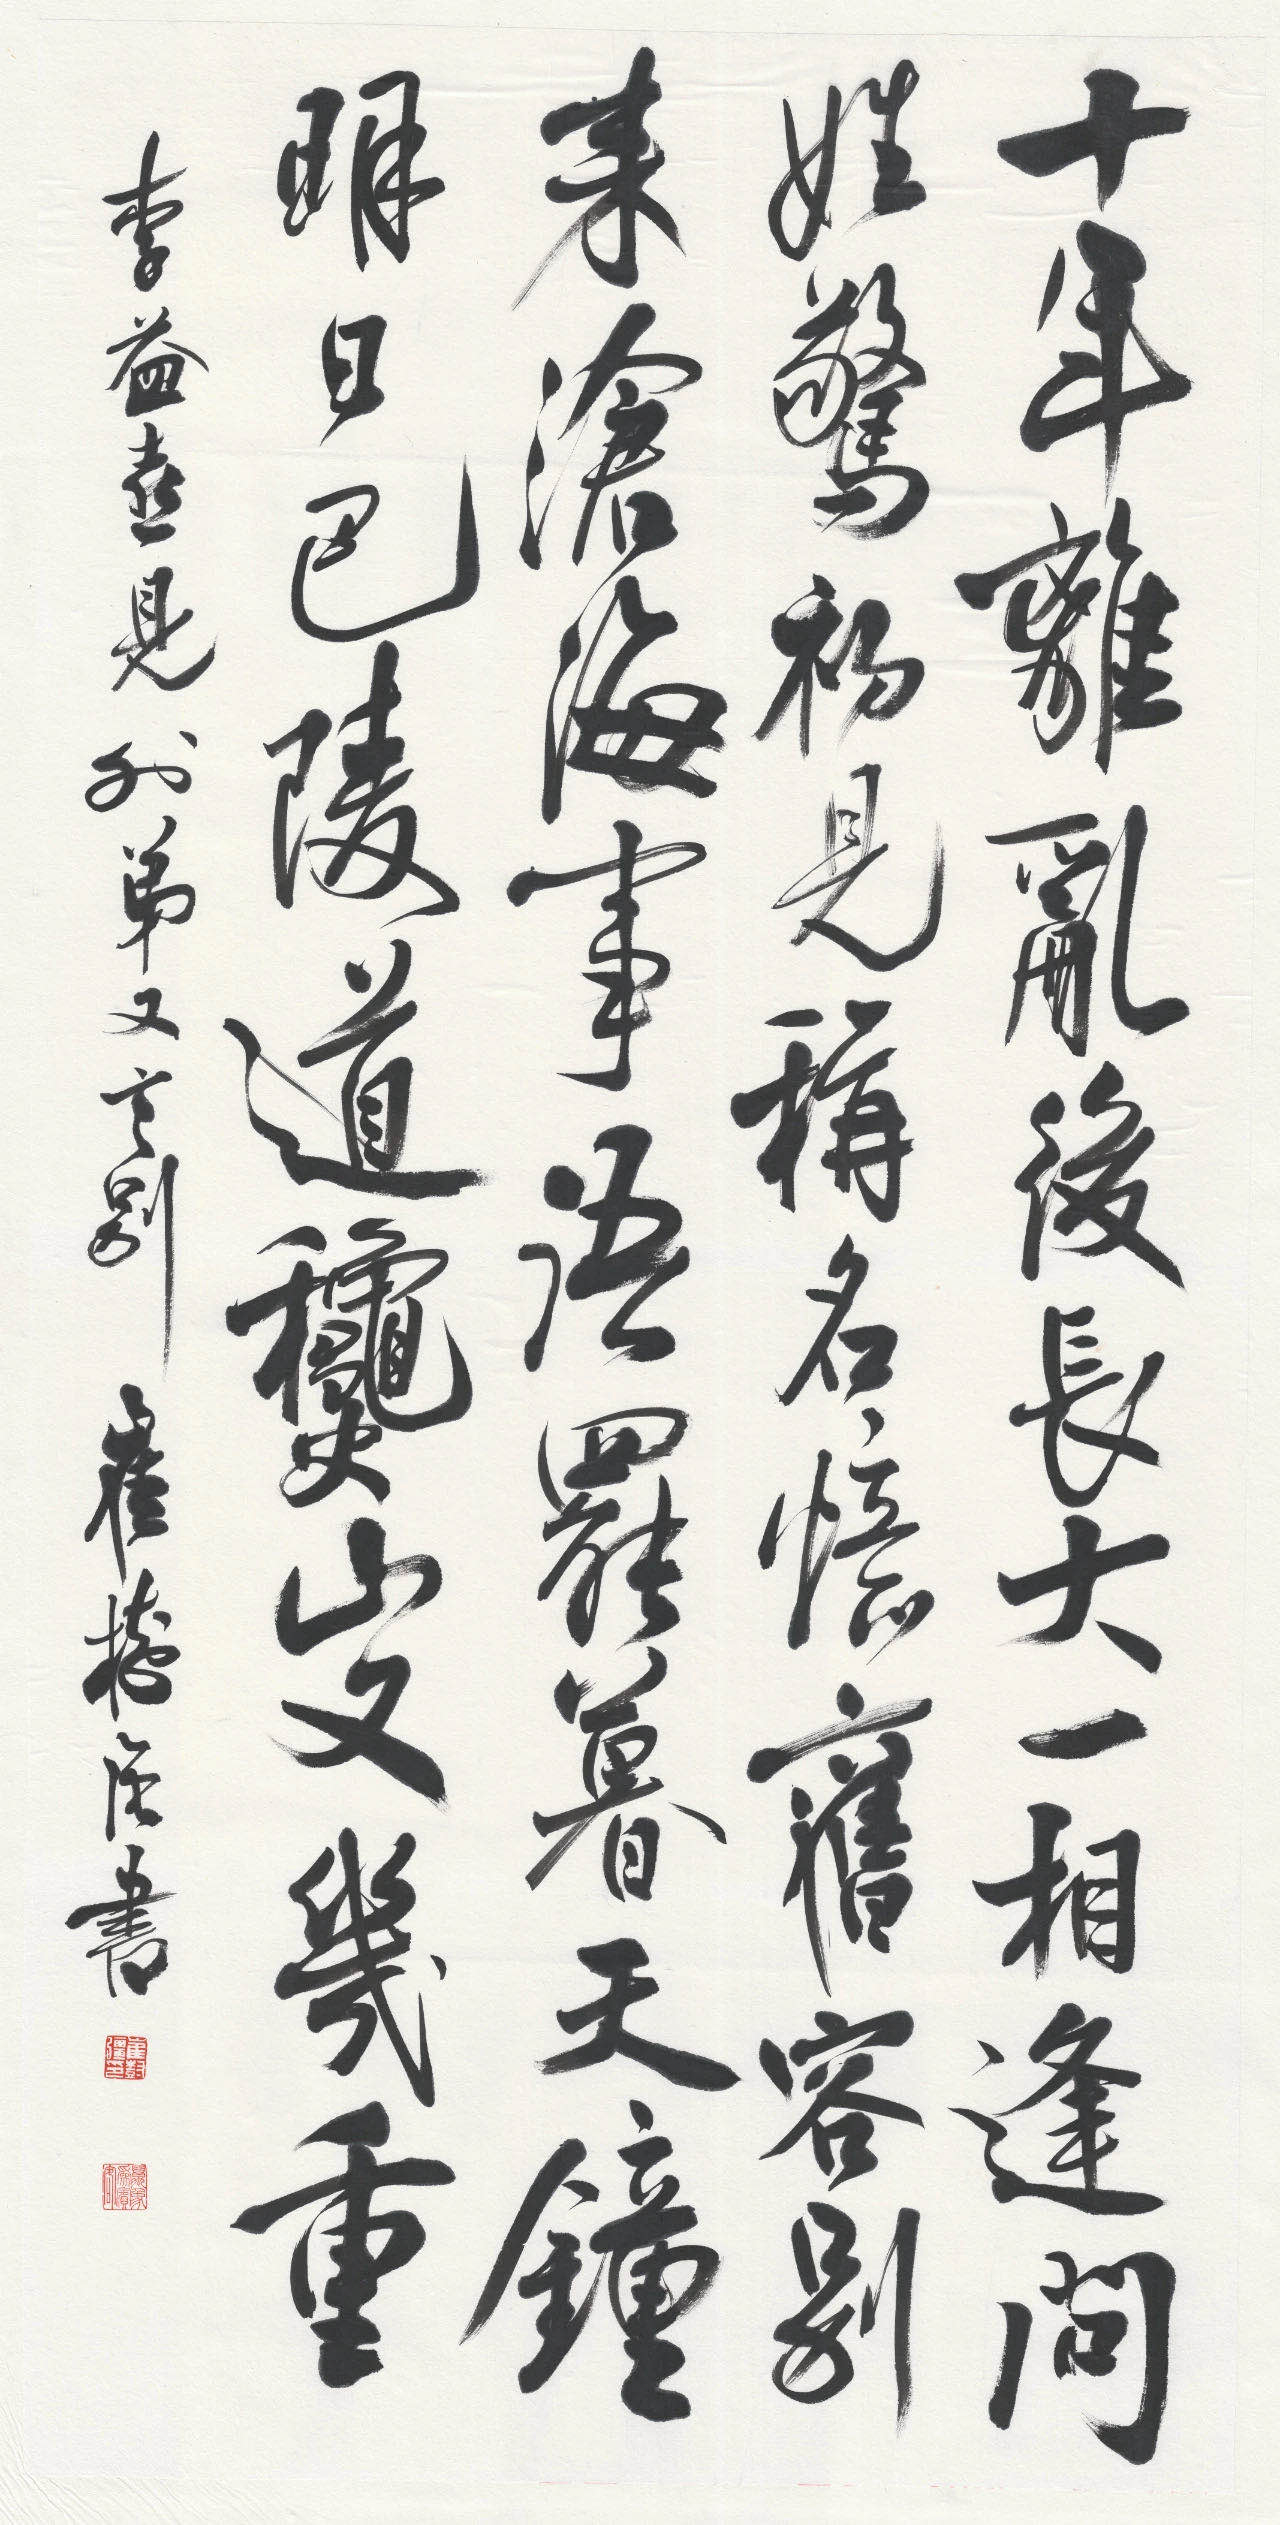 十年離亂後長大一相逢問
姓驚初見稱名憶舊容別
来滄海事語罷暮天鐘
明日巴陵道龝山又幾重
李益喜見外弟又言別 崔樹强書